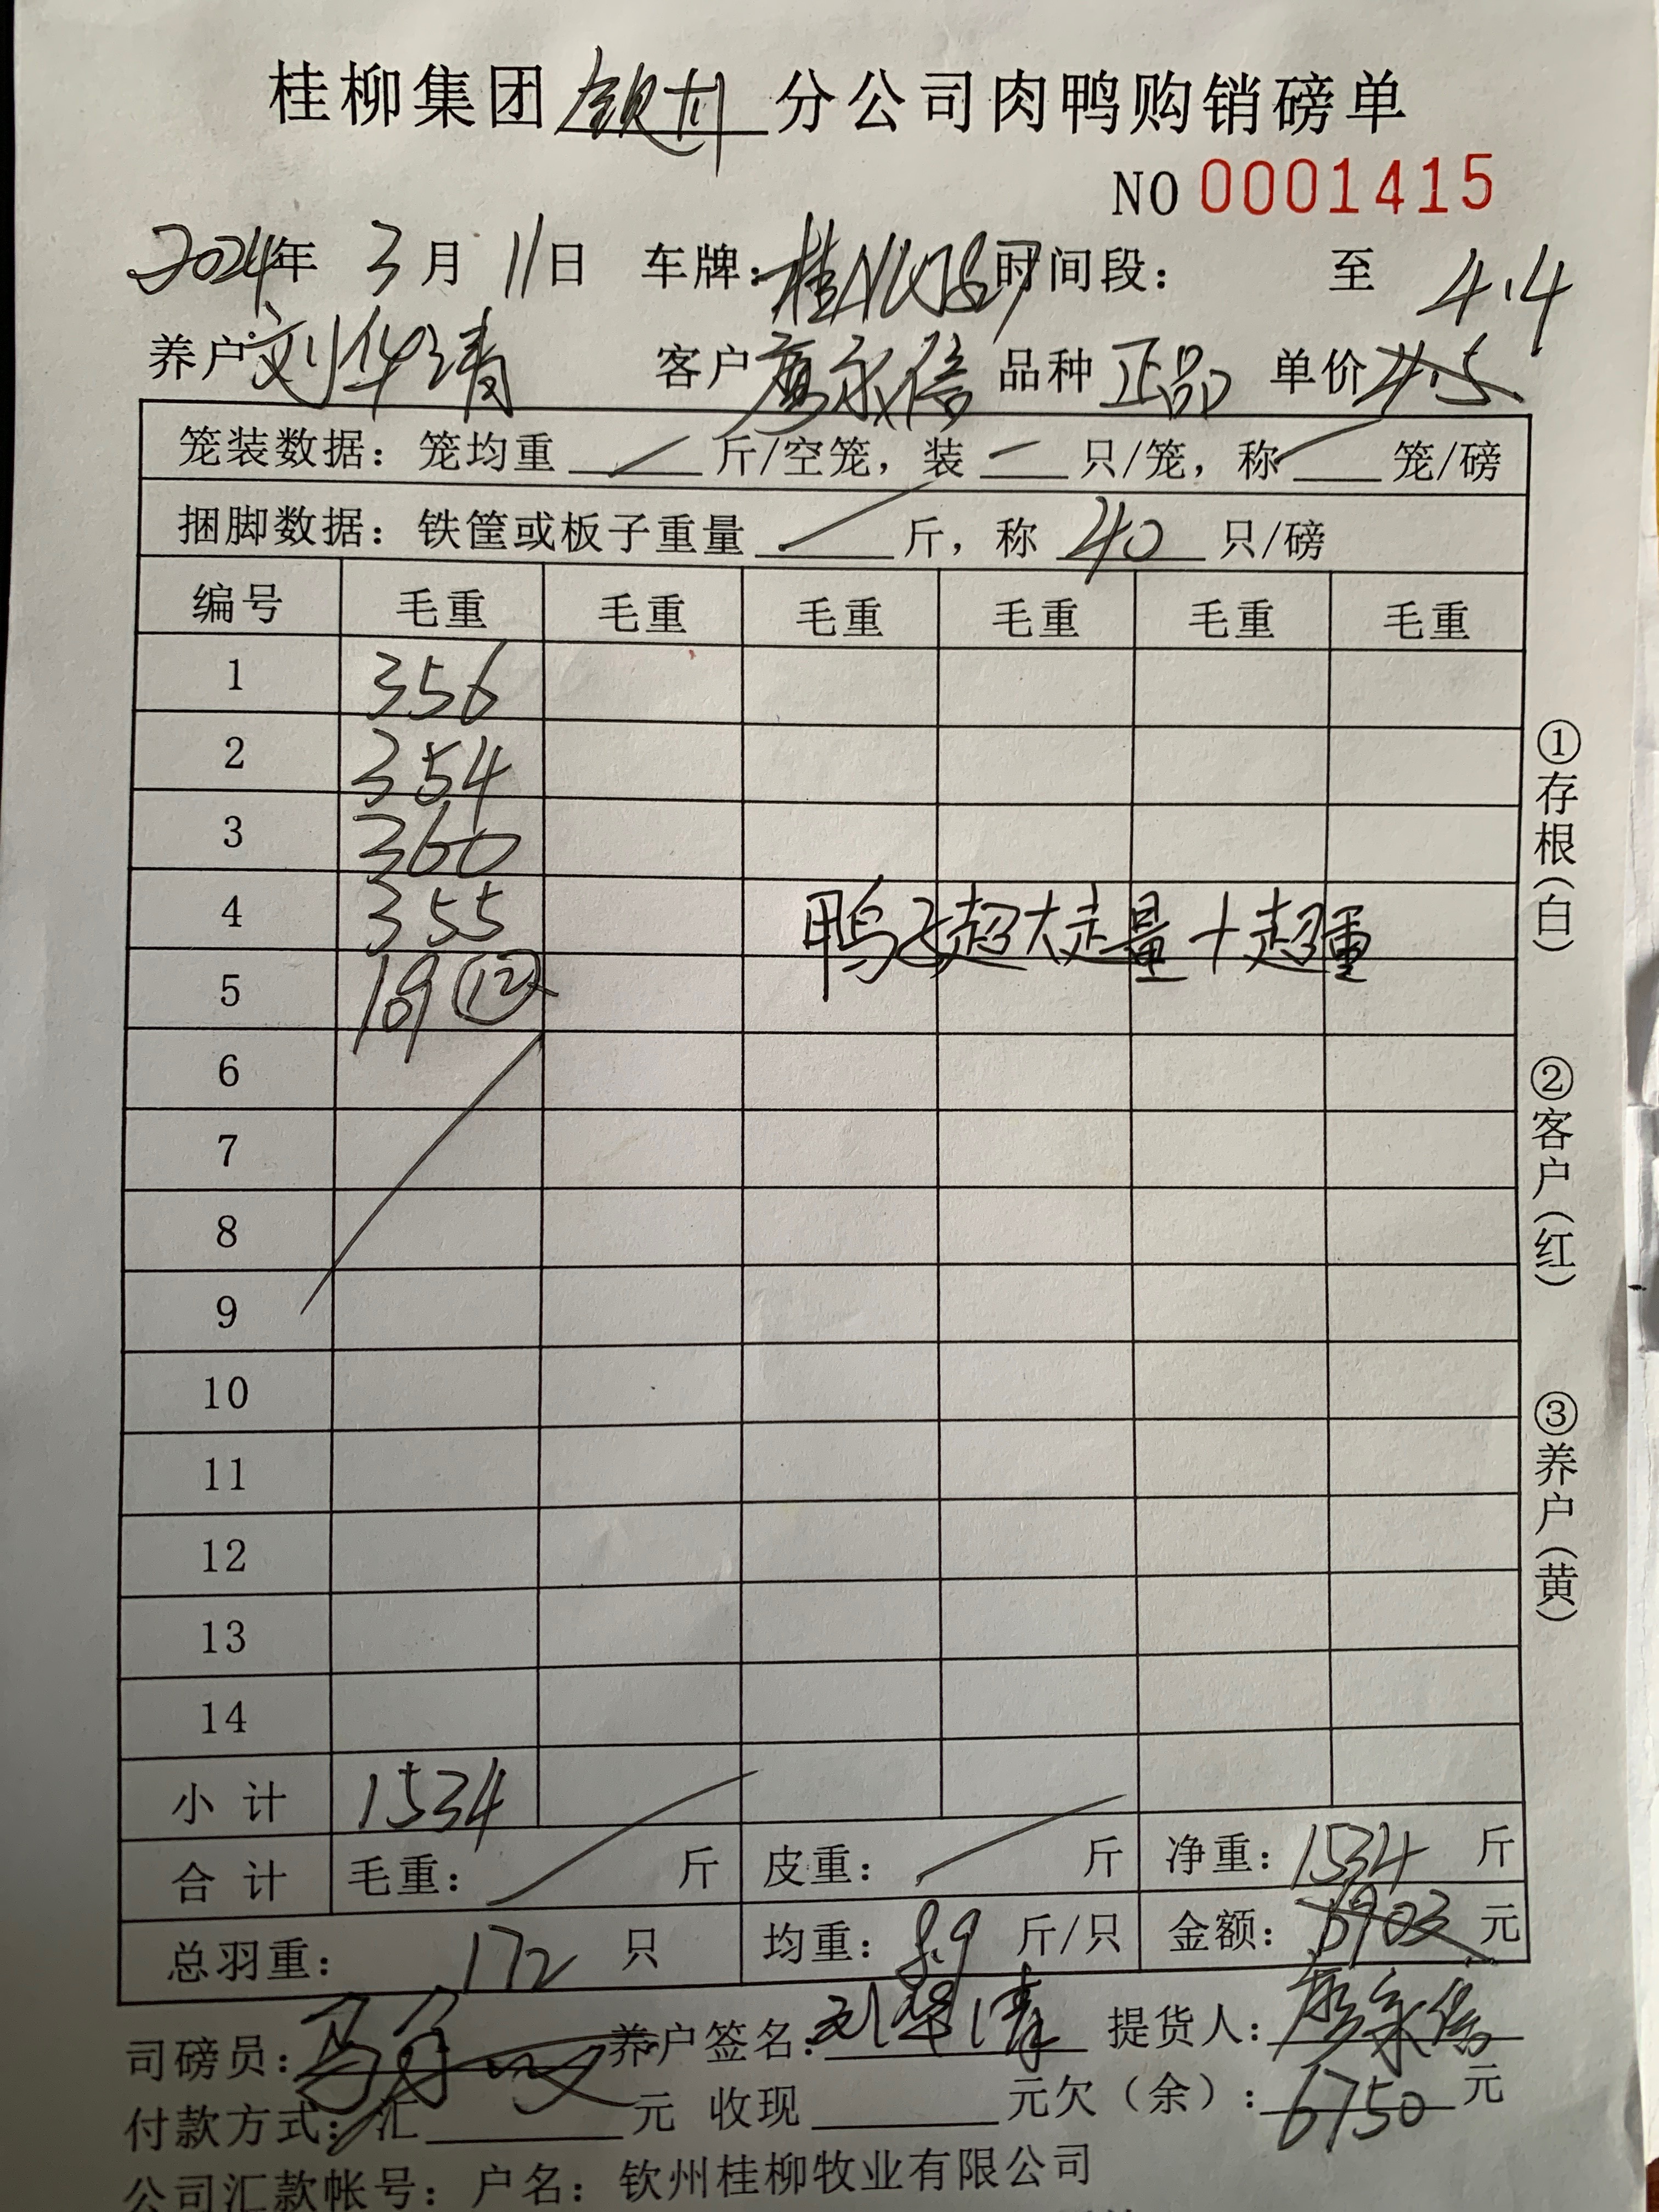 桂柳集团钦州分公司肉鸭购销磅单
NO 0001415
2024年 3月 11日 车牌:桂N 时间段: 至 4.4
养户:刘华清 客户 廖永信 品种 正品 单价 4.5
笼装数据: 笼均重 斤/空笼, 装 只/笼, 称 笼/磅
捆脚数据: 铁筐或板子重量 斤, 称 40 只/磅
编号 毛重 毛重 毛重 毛重 毛重 毛重
1 356
2 354
3 360
4 355 鸭子超大走量+超重
5 109 ⑫
6
7
8
9
10
11
12
13
14
小计 1534
合计 毛重: 斤 皮重: 斤 净重: 1534 斤
总羽重: 172 只 均重: 8.9 斤/只 金额: 6903 元
司磅员: 养户签名: 刘华清 提货人: 廖永信
付款方式: 汇 元 收现 元欠(余): 6750 元
公司汇款帐号: 户名: 钦州桂柳牧业有限公司
①存根(白)
②客户(红)
③养户(黄)